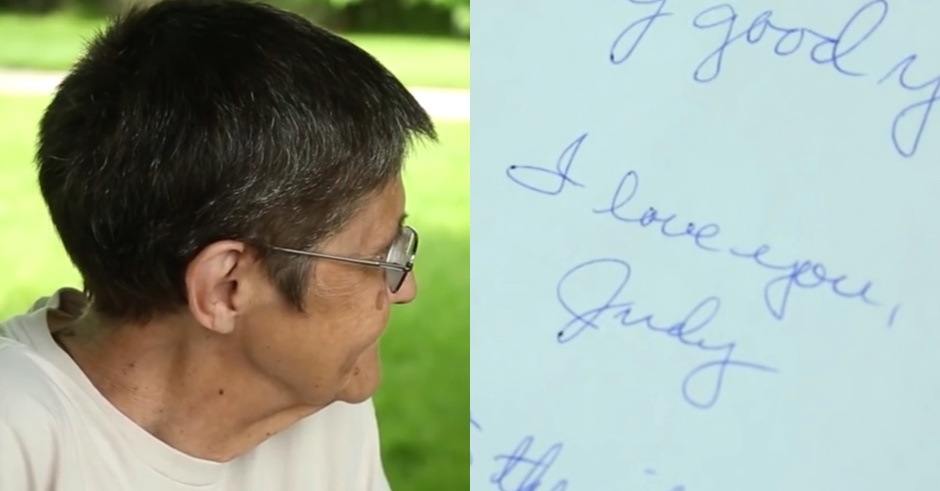 good
I love you,
Judy